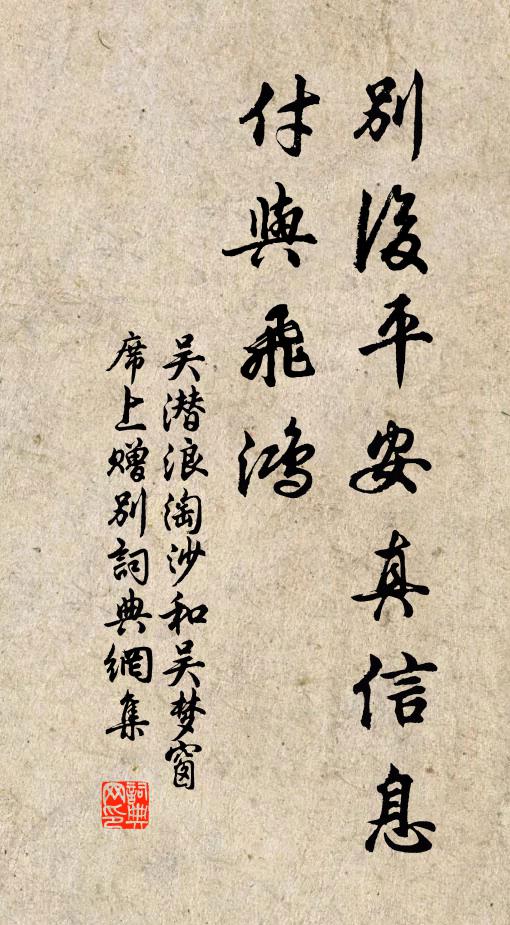 別後平安真信息
付與飛鴻
吴潜浪淘沙和吴梦窗
席上赠别詞典網集
詞典网印